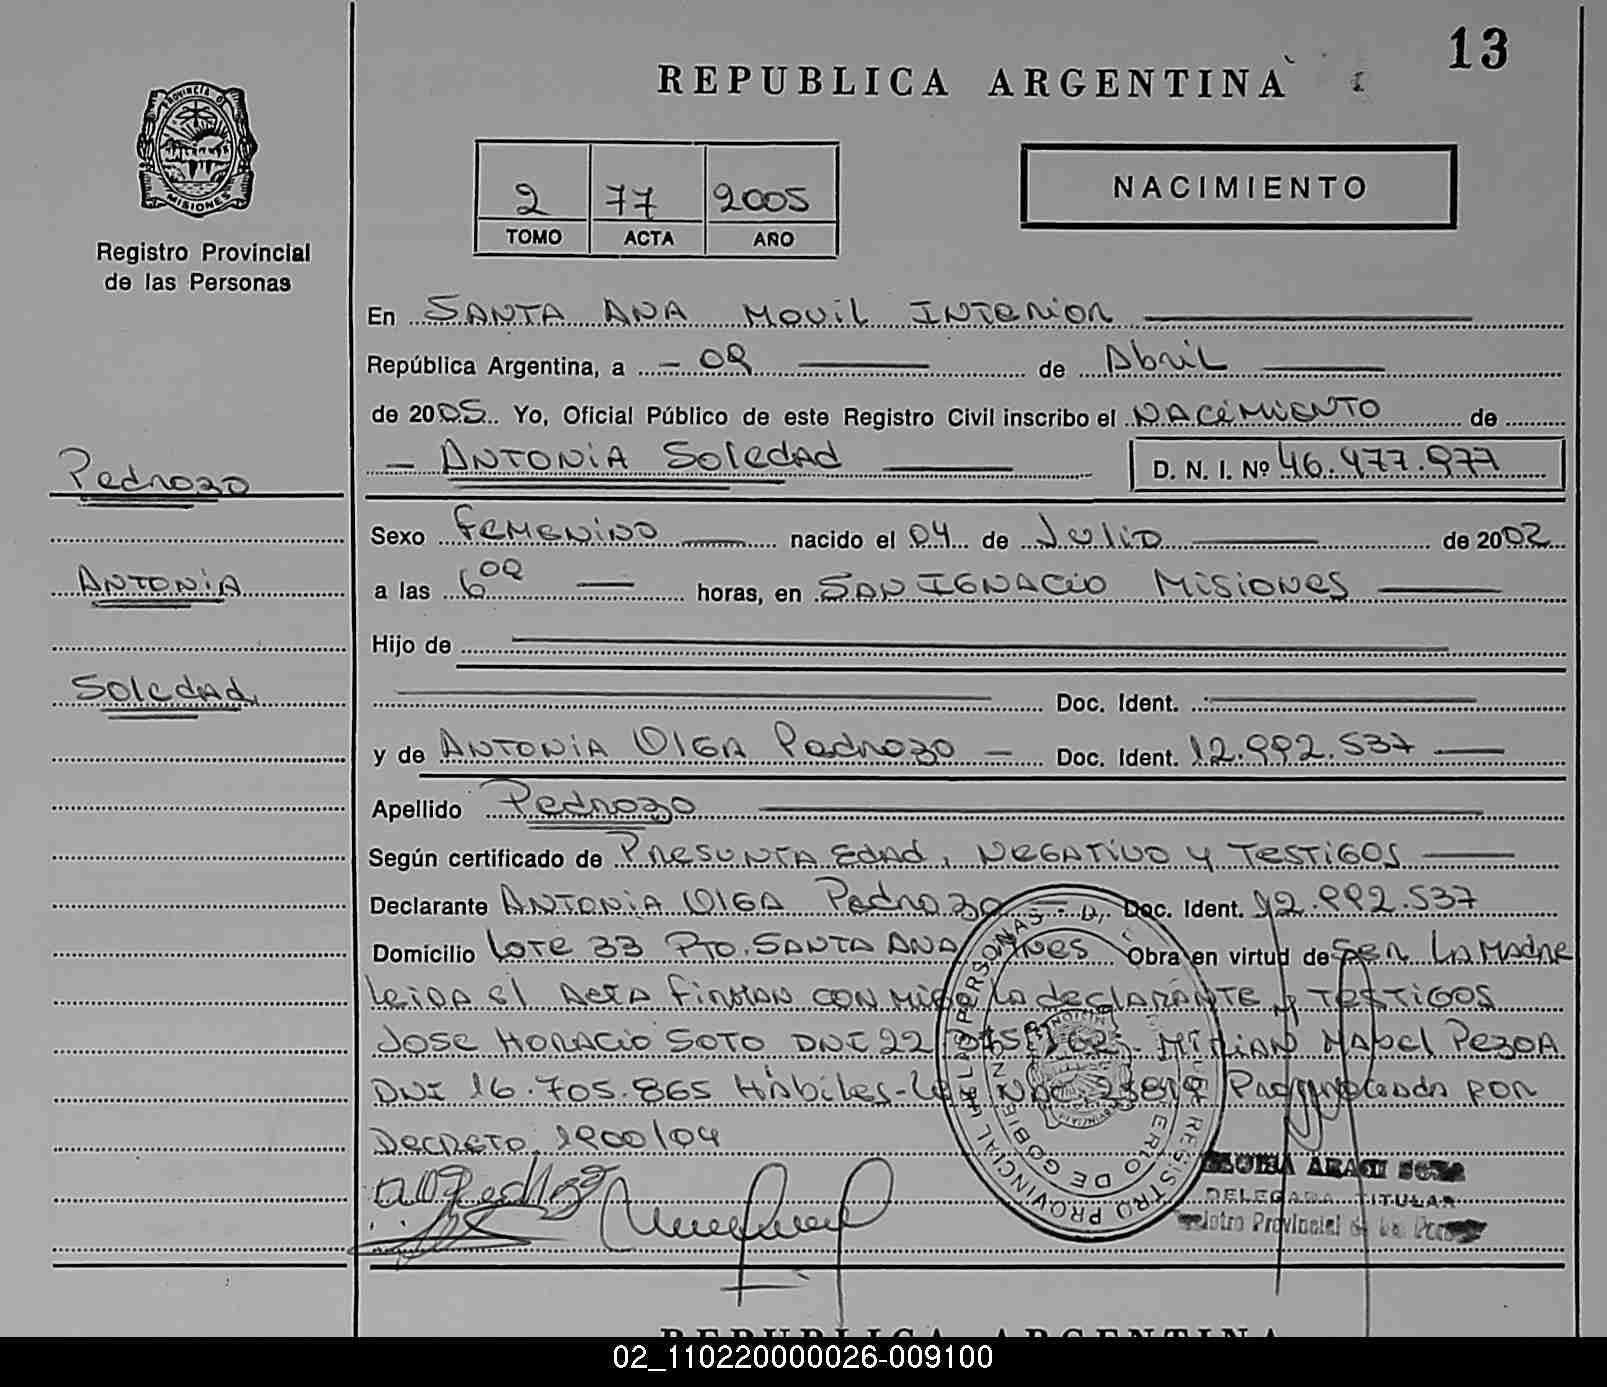 13
REPUBLICA ARGENTINA
PROVINCIA DE
MISIONES
Registro Provincial
de las Personas
2 77 2005
TOMO ACTA AÑO
NACIMIENTO
En SANTA ANA MOVIL INTERIOR
República Argentina, a - 08 de Abril
de 2005 Yo, Oficial Público de este Registro Civil inscribo el NACIMIENTO de
- ANTONIA Soledad D. N. I. Nº 46.477.977
Pedrozo
ANTONIA
Soledad
Sexo FEMENINO nacido el 04 de Julio de 2002
a las 6 00 horas, en SAN IGNACIO MISIONES
Hijo de
Doc. Ident.
y de ANTONIA OLGA Pedrozo - Doc. Ident. 12.992.537
Apellido Pedrozo
Según certificado de PRESUNTA EDAD, NEGATIVO Y TESTIGOS
Declarante ANTONIA OLGA Pedrozo Doc. Ident. 12.992.537
Domicilio Lote 33 Pto. SANTA ANA Obra en virtud de SER LA MADRE
Leida el Acta firman conmigo la declarante y TESTIGOS
JOSE HORACIO SOTO DNI 22 MIRIAN MABEL PEZOA
DNI 16.705.865 Hábiles- por
Decreto 1900/04
DELEGADA TITULAR
Registro Provincial de las
REPUBLICA ARGENTINA
02_110220000026-009100